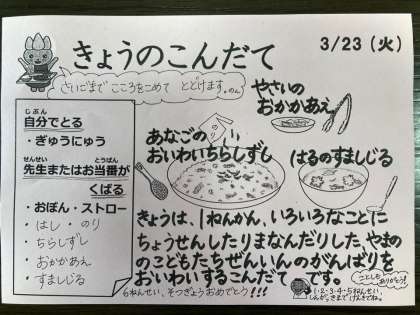 きょうのこんだて
3/23(火)
さいごまで こころをこめて とどけます。のん
やさいの
おかかあえ
じぶん
自分でとる
・ぎゅうにゅう
せんせい とうばん
先生またはお当番が
くばる
・おぼん・ストロー
・はし・のり
・ちらしずし
・おかかあえ
・すましじる
のり
あなごの
おいわいちらしずし
はるのすましじる
きょうは、1ねんかん、いろいろなことに
ちょうせんしたりまなんだりした、やまの
のこどもたちぜんいんのがんばりを
おいわいするこんだて です。
6ねんせい、そつぎょうおめでとう!!!
ことしも
ありがとう!
1・2・3・4・5ねんせい、
しんがっきまで げんきでね。